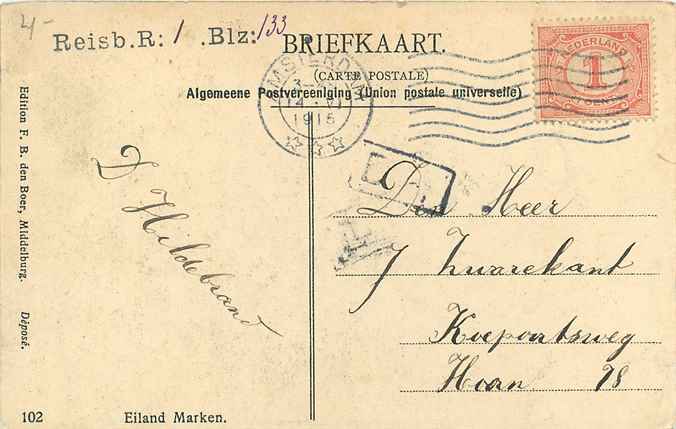 4-
Reisb.R: 1 .Blz: 133
BRIEFKAART.
(CARTE POSTALE)
Algemeene Postvereeniging (Union postale universelle)
AMSTERDAM
1915
NEDERLAND
1
CENT
Edition F. B. den Boer, Middelburg. Déposé.
D Hildebrand
Den Heer
J Zwarekant
Koepoortsweg
Hoorn 78
102 Eiland Marken.